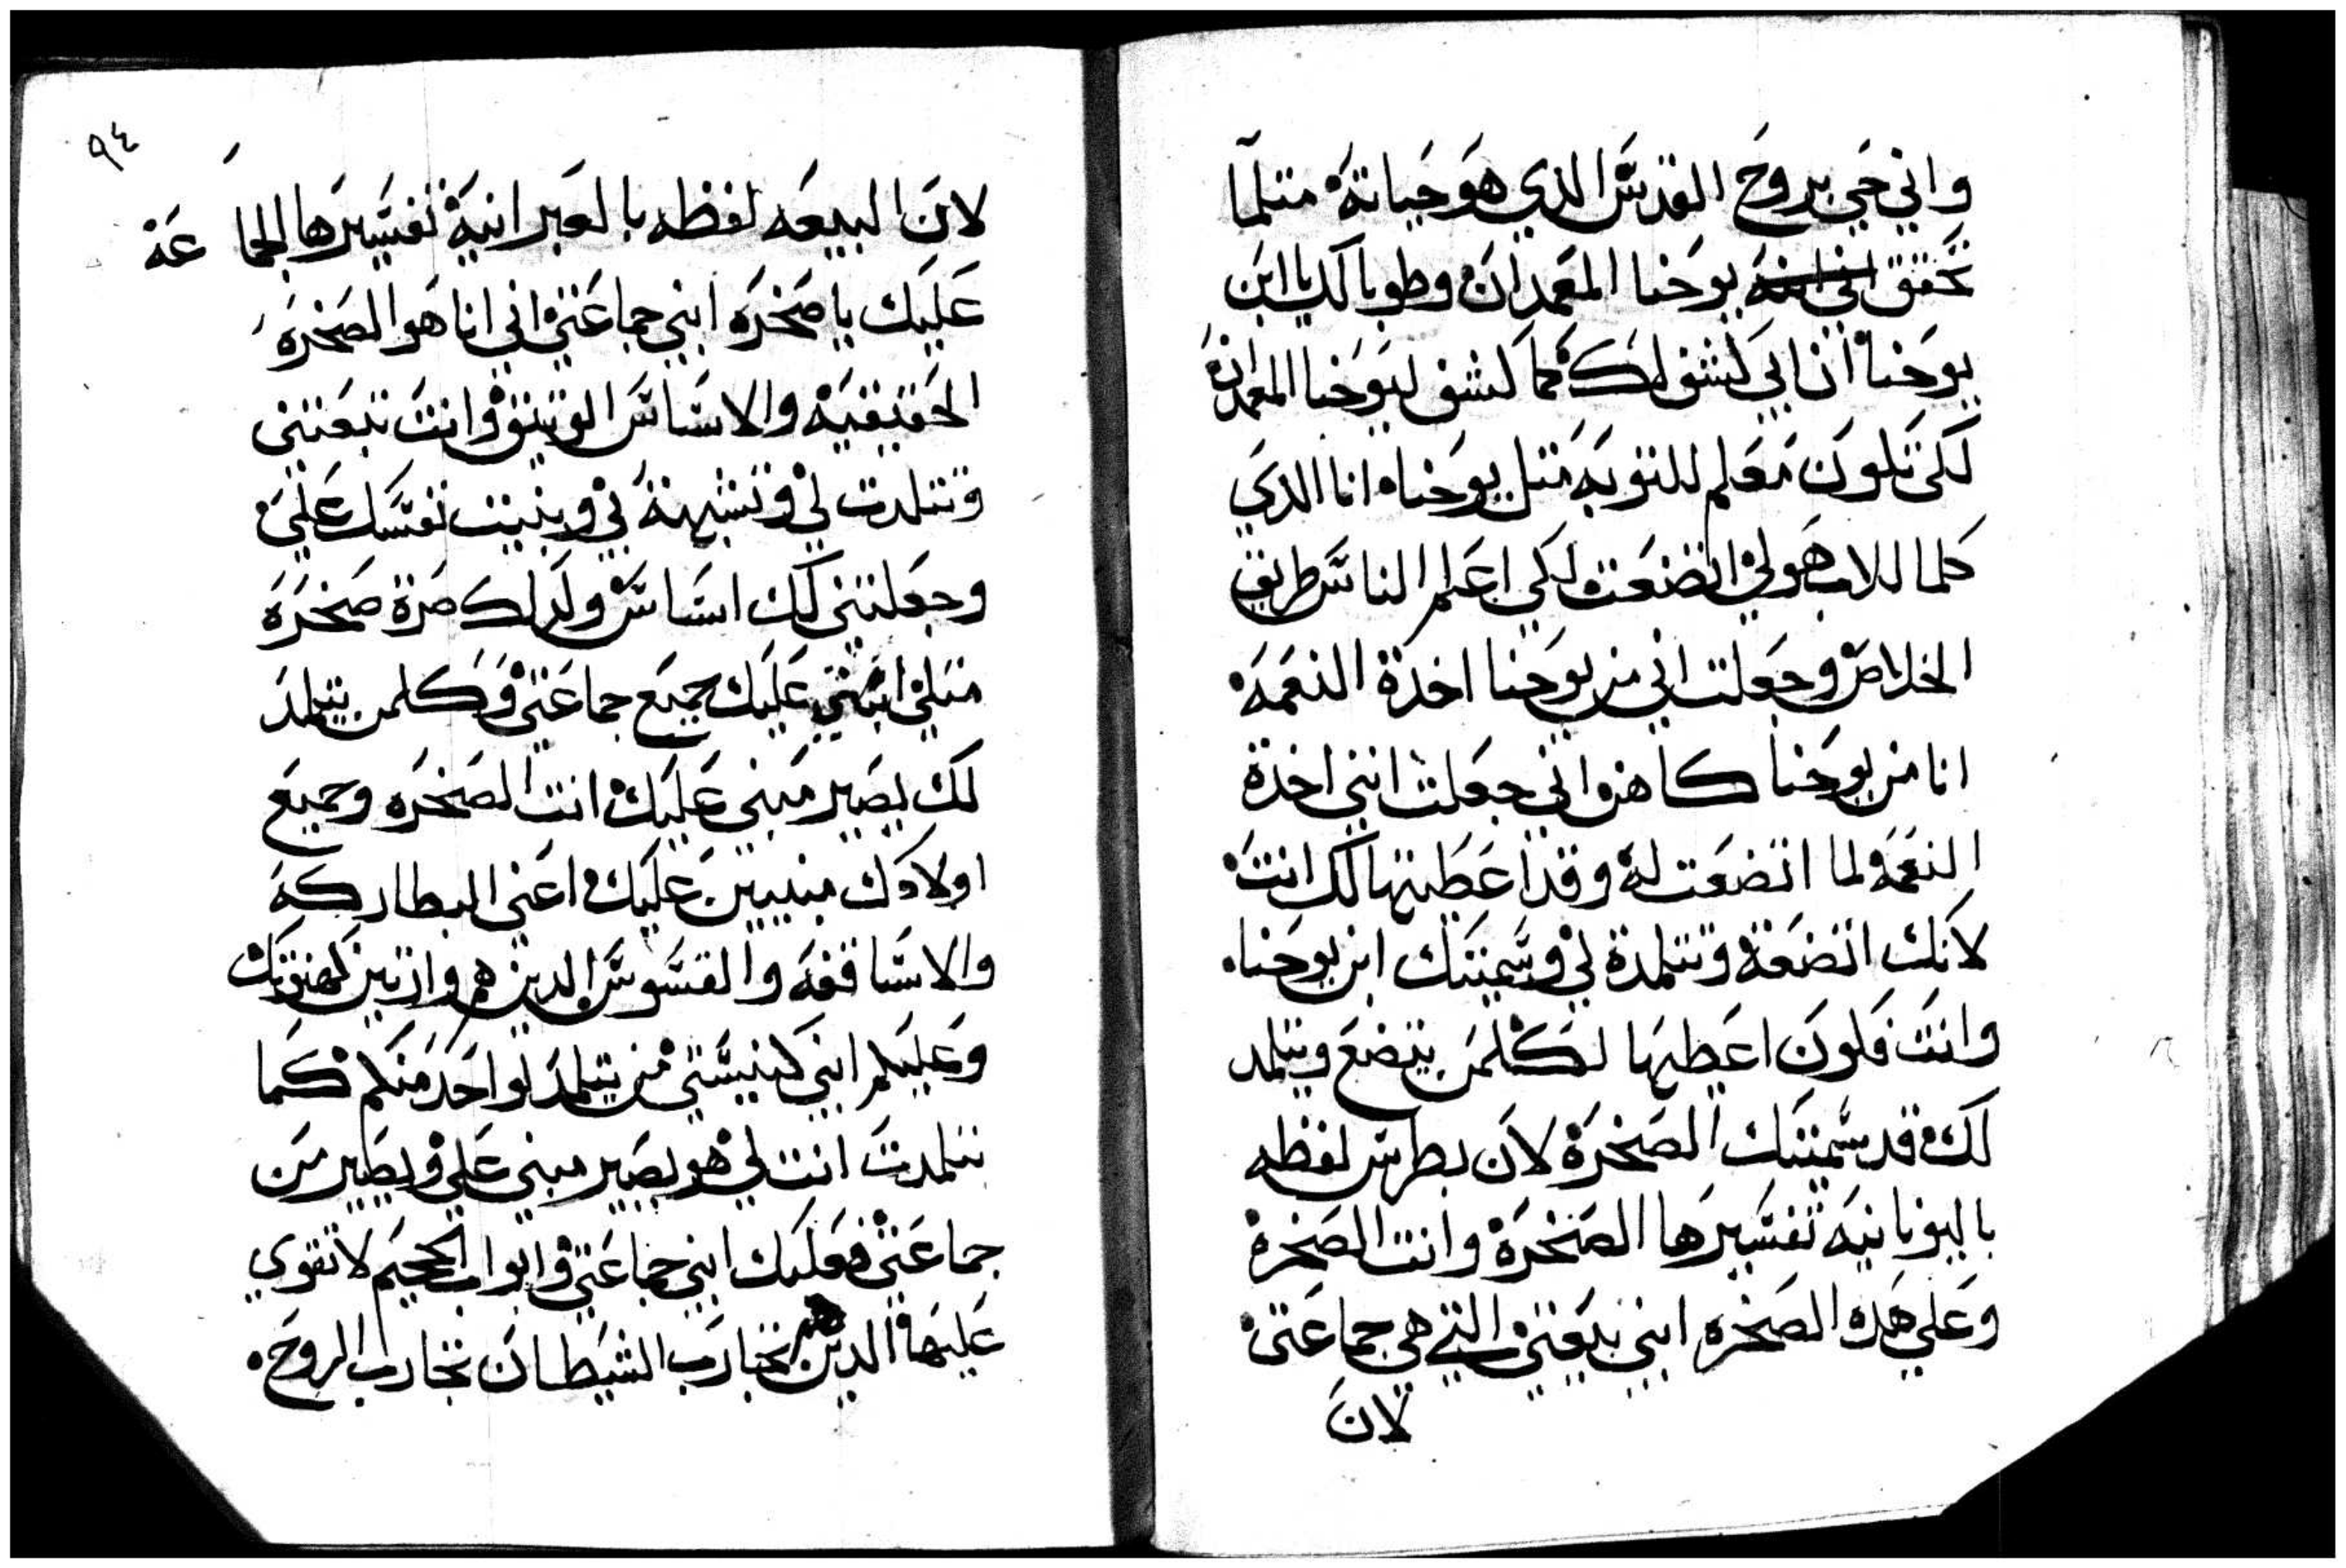 واني حي بروح القدس الذي هو حياته متلما
تحقق يوحنا المعمدان وطوباك يا ابن
يوحنا ان ابي كشف لك كما كشف ليوحنا المعمدان
لكي تكون معلم للتوبه متل يوحنا انا الدي
كلما للاب هو لي اتضعت لكي اعلم الناس طريق
الخلاص وجعلت اني من يوحنا اخدة النعمه
انا من يوحنا كاهنواني جعلت انني اخدة
النعمه لما اتضعت له وقد اعطيتها لك انت
لانك اتضعة وتتلمدة لي وسميتك ابن يوحنا
وانت فكون اعطيها لكلمن يتضع ويتلمد
لك قد سميتك الصخرة لان بطرس لفظه
باليونانيه تفسيرها الصخرة وانت الصخره
وعلي هده الصخره ابني بيعتي التي هي جماعتي
لان
٩٤
لان البيعه لفظه بالعبرانية تفسيرها الجماعة
عليك يا صخره ابني جماعتي اني انا هو الصخره
الحقيقيه والاساس الوتيق وانت تبعتني
وتتلمدت لي وتشبهة بي وبنيت نفسك علي
وجعلتني لك اساس ولدلك صرة صخره
متلي ابني عليك جميع جماعتي وكلمن يتلمد
لك يصير مبني عليك انت الصخره وجميع
اولادك مبنيين عليك اعني البطاركه
والاساقفه والقسوس الدين هم وارتين كهنوتك
وعليكم ابني كنيستي من يتلمد لواحد منكم كما
تتلمدت انت لي هو يصير مبني علي ويصير من
جماعتي فعليك ابني جماعتي وابواب الجحيم لا تقوي
عليها الدين هم تجارب الشيطان تجارب الروح